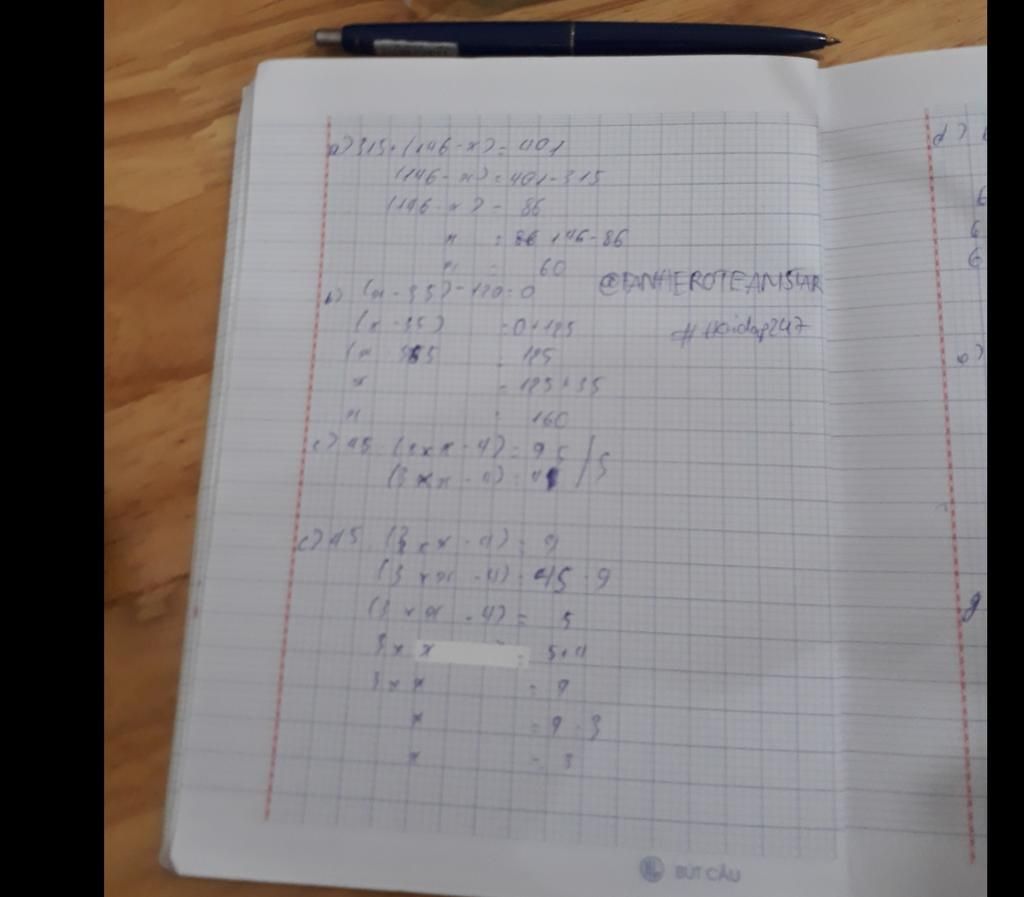 a) 315 + (146 - x) = 401
(146 - x) = 401 - 315
(146 - x) = 86
x = 146 - 86
x = 60
@FANHEROTEAMSTAR
b) (x - 35) - 120 = 0
(x - 35) = 0 + 125
#tkvidap247
x 35 = 125
x = 125 + 35
x = 160
c) 45 (3 x x - 4) = 9
(3 x x - 4) =
c) 45 (3 x x - 4) = 9
(3 x x - 4) = 45 : 9
(3 x x - 4) = 5
3 x x = 5 + 4
3 x x = 9
x = 9 : 3
x = 3
BÚT CÂU
d)
6
6
6
e)
g